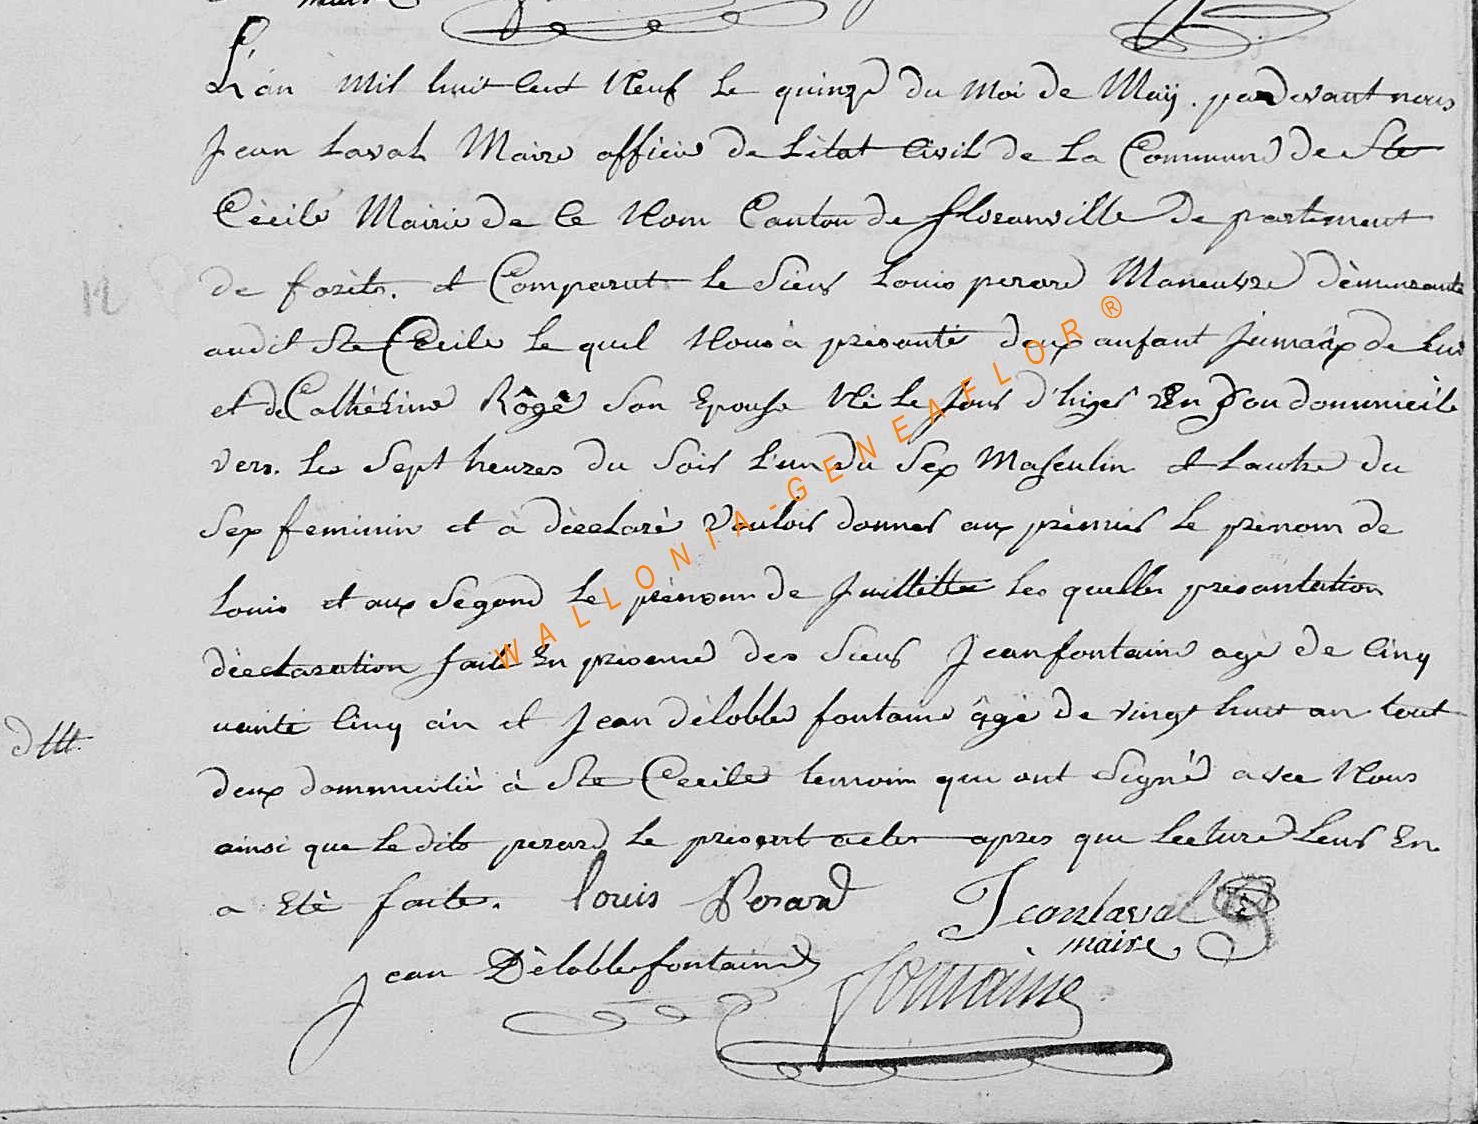 L'an mil huit cent Neuf le quinze du moi de Maÿ. pardevant nous
Jean Laval Maire officie de L'état Civil de La Commune de Ste
Cècile Mairie de Ce Nom Canton de floranville departement
de forèts. et Comparut le Sieur Louis perard Maneuvre dèmeurante
audit Ste Cecile le quel Nous à prèsantè deux anfant Jumaux de Lui
et de Cathèrine Rôgè Son Epouse Nè le Jour d'hiyer En Son dommicile
vers. les Sept heures du Soir l'un du Sex Masculin et Lautre du
Sex feminin et à dèeclarè Vouloir donner aux prèmier le prènom de
Louis et aux Segond le prènom de Juillette les quelles presantation
dèeclaration faite En prèsence des Sieur Jean fontaine agè de Cinq
vente Cinq àn et Jean Dèlobbe fontaine âgè de vingt huit an tout
deux dommicilié à Ste Cecile temoin qui ont Signè avec Nous
ainsi que le dits perard le prèsent acte apres que lecture leur En
a Etè faite. louis Perard Jean laval
maire
Jean Dèlobbe fontaine fontaine
12
dttt.
WALLONIA-GENEAFLOR ®